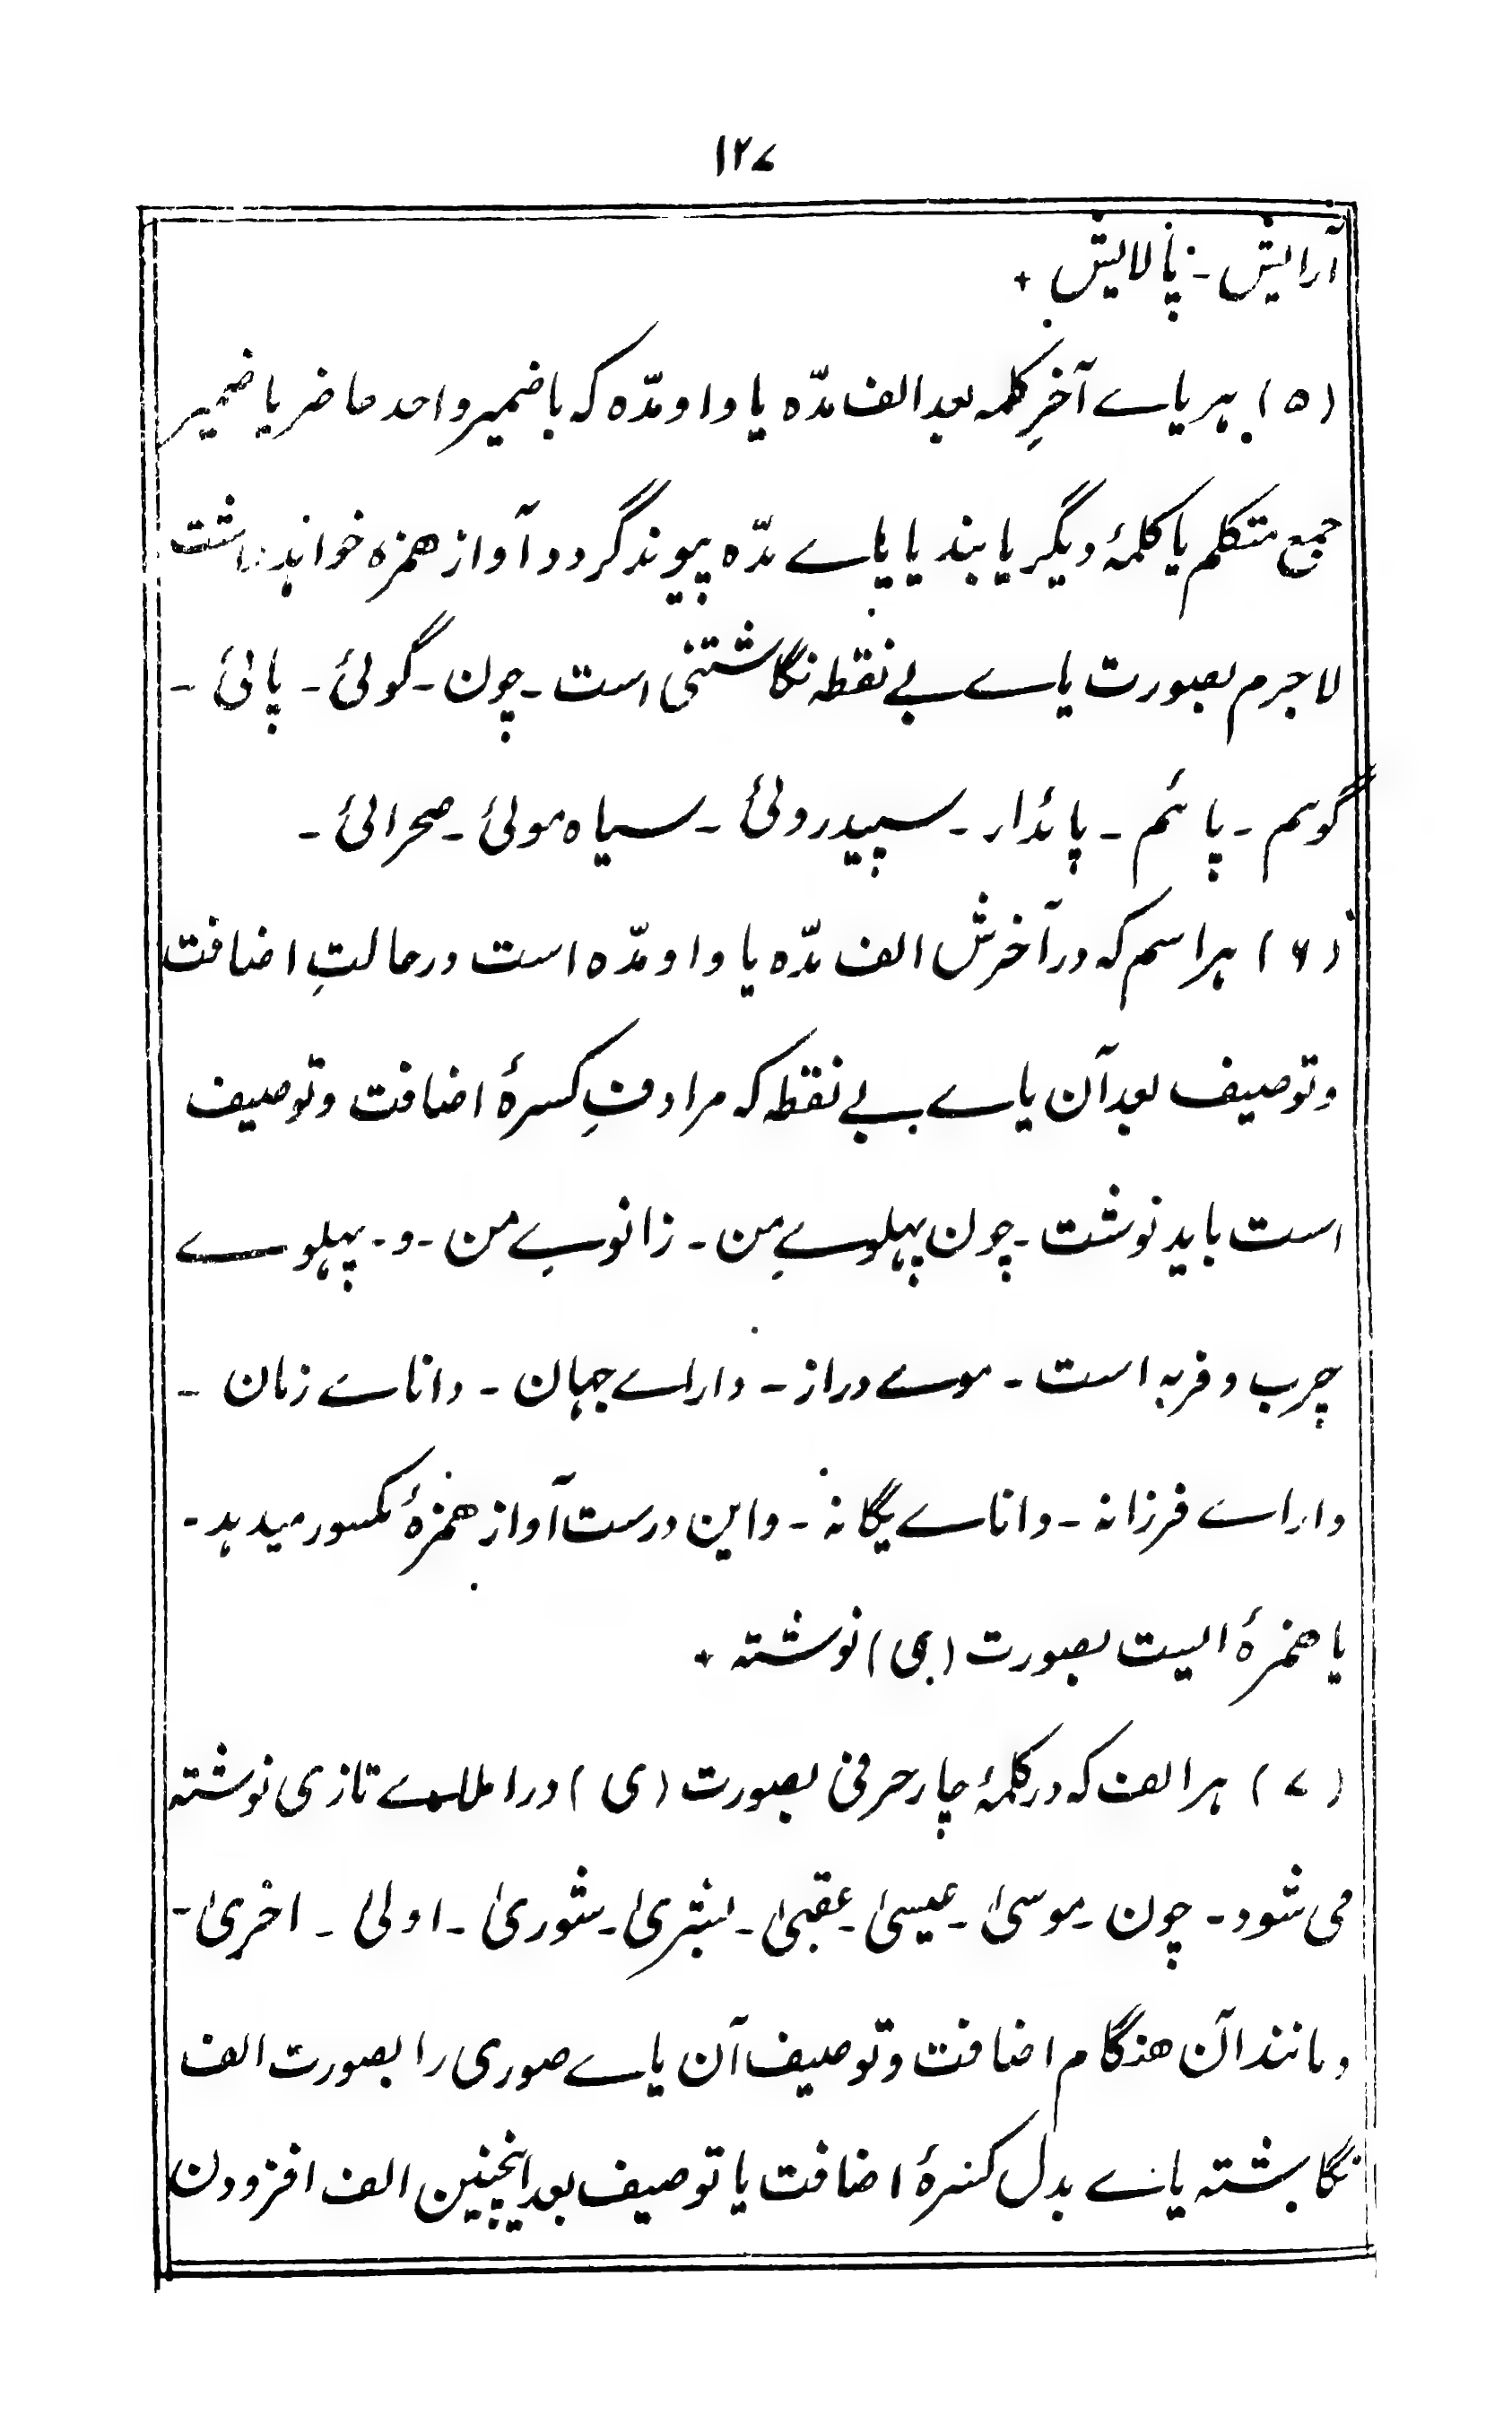 ۱۲۷
آرایش ۔ پالایش ٭
(۵) ہر یاے آخرِ کلمہ بعد الف مدّہ یا واو مدّہ کہ با ضمیر واحد حاضر یا ضمیر
جمع متکلم یا کلمۂ دیگر یا بند یا یاے مدّہ پیوند گردد آواز همزه خواہد داشت
لاجرم بصورت یاے بے نقطہ نگاشتنی است ۔ چون ۔ گوئی ۔ پائی ۔
گوئم ۔ پائم ۔ پائدار ۔ سپید روئی ۔ سیاہ موئی ۔ صحرائی ۔
(۶) ہر اسم کہ در آخرش الف مدّہ یا واو مدّہ است در حالتِ اضافت
و توصیف بعد آن یاے بے نقطہ کہ مرادفِ کسرۂ اضافت و توصیف
است باید نوشت ۔ چون پہلوےِ من ۔ زانوےِ من ۔ و ۔ پہلوے
چرب و فربہ است ۔ موے دراز ۔ داراے جہان ۔ داناے زمان ۔
داراے فرزانہ ۔ داناے یگانہ ۔ و این درست آواز همزۂ مکسور میدہد ۔
یا همزۂ ایست بصورت (ی) نوشتہ ٭
(۷) ہر الف کہ در کلمۂ چار حرفی بصورت (ی) در املاے تازی نوشتہ
می شود ۔ چون ۔ موسیٰ ۔ عیسیٰ ۔ عقبیٰ ۔ بشریٰ ۔ شوریٰ ۔ اولیٰ ۔ اخریٰ ۔
و مانند آن هنگام اضافت و توصیف آن یاے صوری را بصورت الف
نگاشتہ یاے بدل کسرۂ اضافت یا توصیف بعد اینچنین الف افزودن